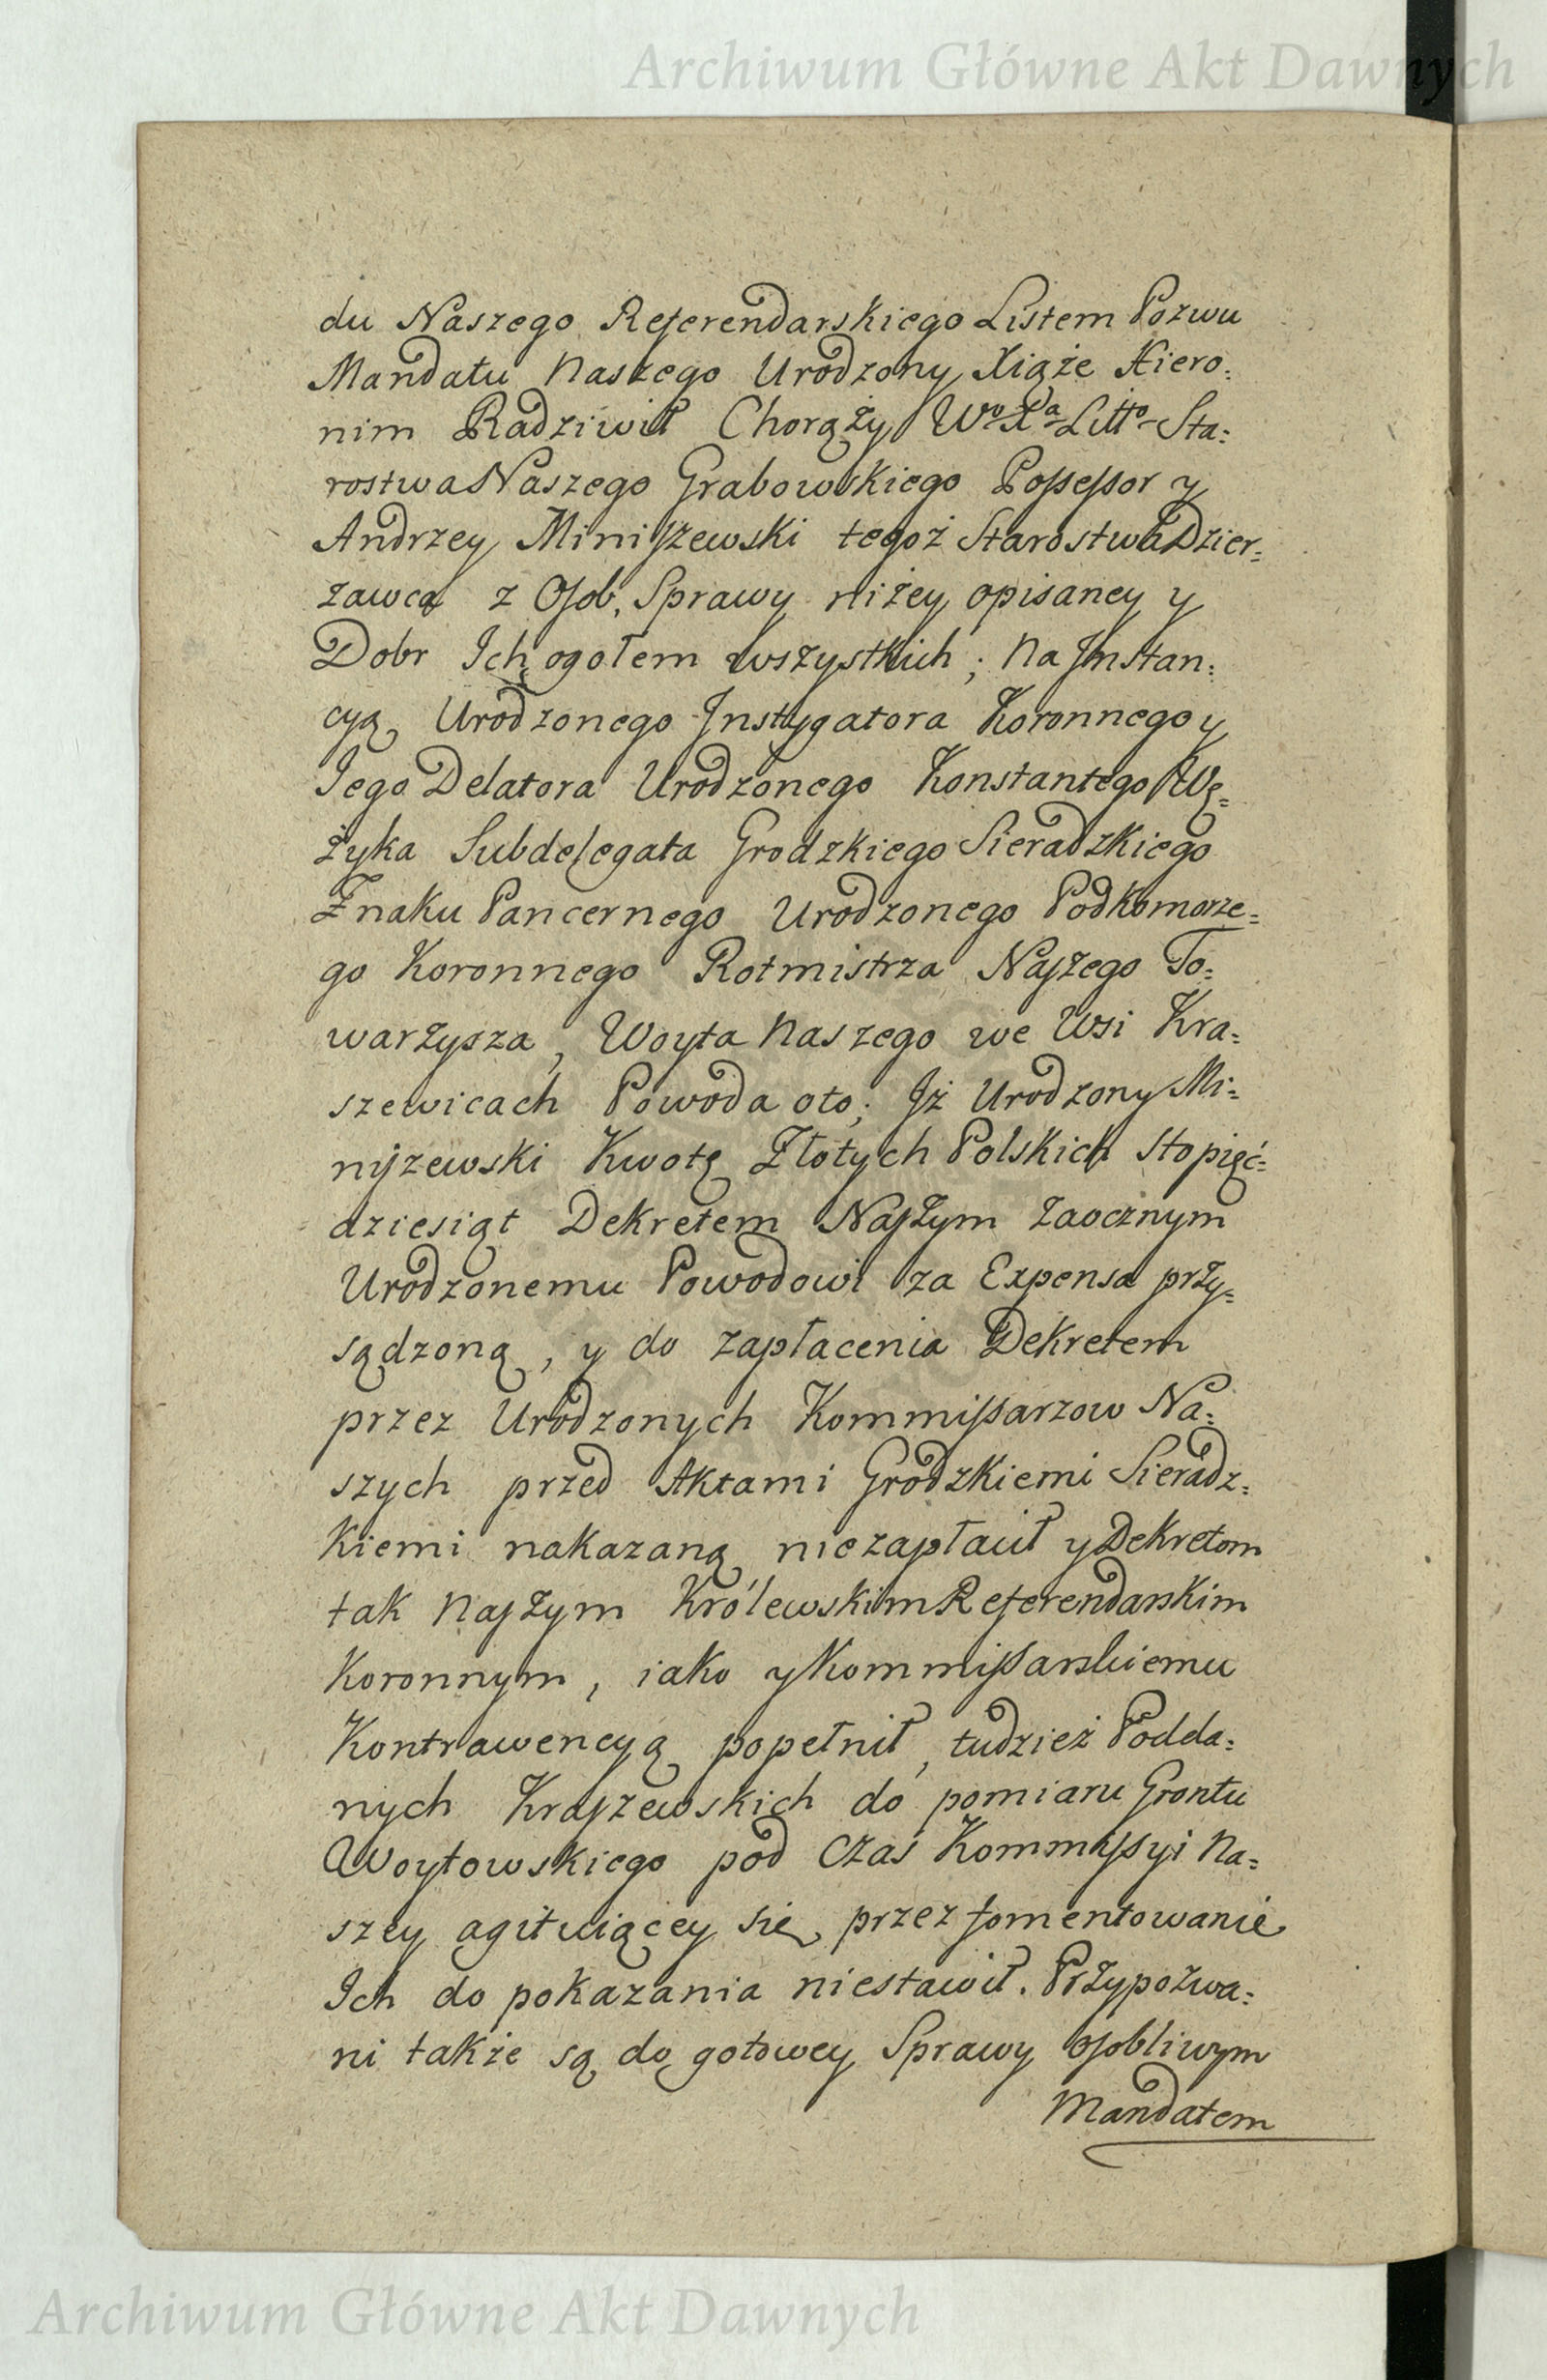 Archiwum Główne Akt Dawnych
du Naszego Referendarskiego Listem Pozwu
Mandatu Naszego Urodzony Xiąże Hiero:
nim Radziwił Chorąży Wo Xa Litto Sta:
rostwa Naszego Grabowskiego Possessor y
Andrzey Miniszewski tegoż Starostwa Dzier:
żawca z Osob, Sprawy niżey opisaney y
Dobr Ich ogołem wszystkich; Na Jnstan:
cyą Urodzonego Jnstygatora Koronnego y
Iego Delatora Urodzonego Konstantego Wę:
żyka Subdelegata Grodzkiego Sieradzkiego
Znaku Pancernego Urodzonego Podkomorze:
go Koronnego Rotmistrza Naszego To:
warzysza, Woyta Naszego we Wsi Kra:
szewicach Powoda oto; Jż Urodzony Mi:
niszewski Kwotę Złotych Polskich Stopięć:
dziesiąt Dekretem Naszym Zaocznym
Urodzonemu Powodowi za Expensa przy:
sądzoną, y do zapłacenia Dekretem
przez Urodzonych Kommissarzow Na:
szych przed Aktami Grodzkiemi Sieradz:
kiemi nakazaną niezapłacił y Dekretom
tak Naszym Królewskim Referendarskim
Koronnym, iako y Kommissarskiemu
Kontrawencyą popełnił, tudzież Podda:
nych Kraszewskich do pomiaru Grontu
Woytowskiego pod Czas Kommissyi Na:
szey agituiącey się przez fomentowanie
Ich do pokazania niestawił. Przypozwa:
ni także są do gotowey Sprawy osobliwym
Mandatem
Archiwum Główne Akt Dawnych